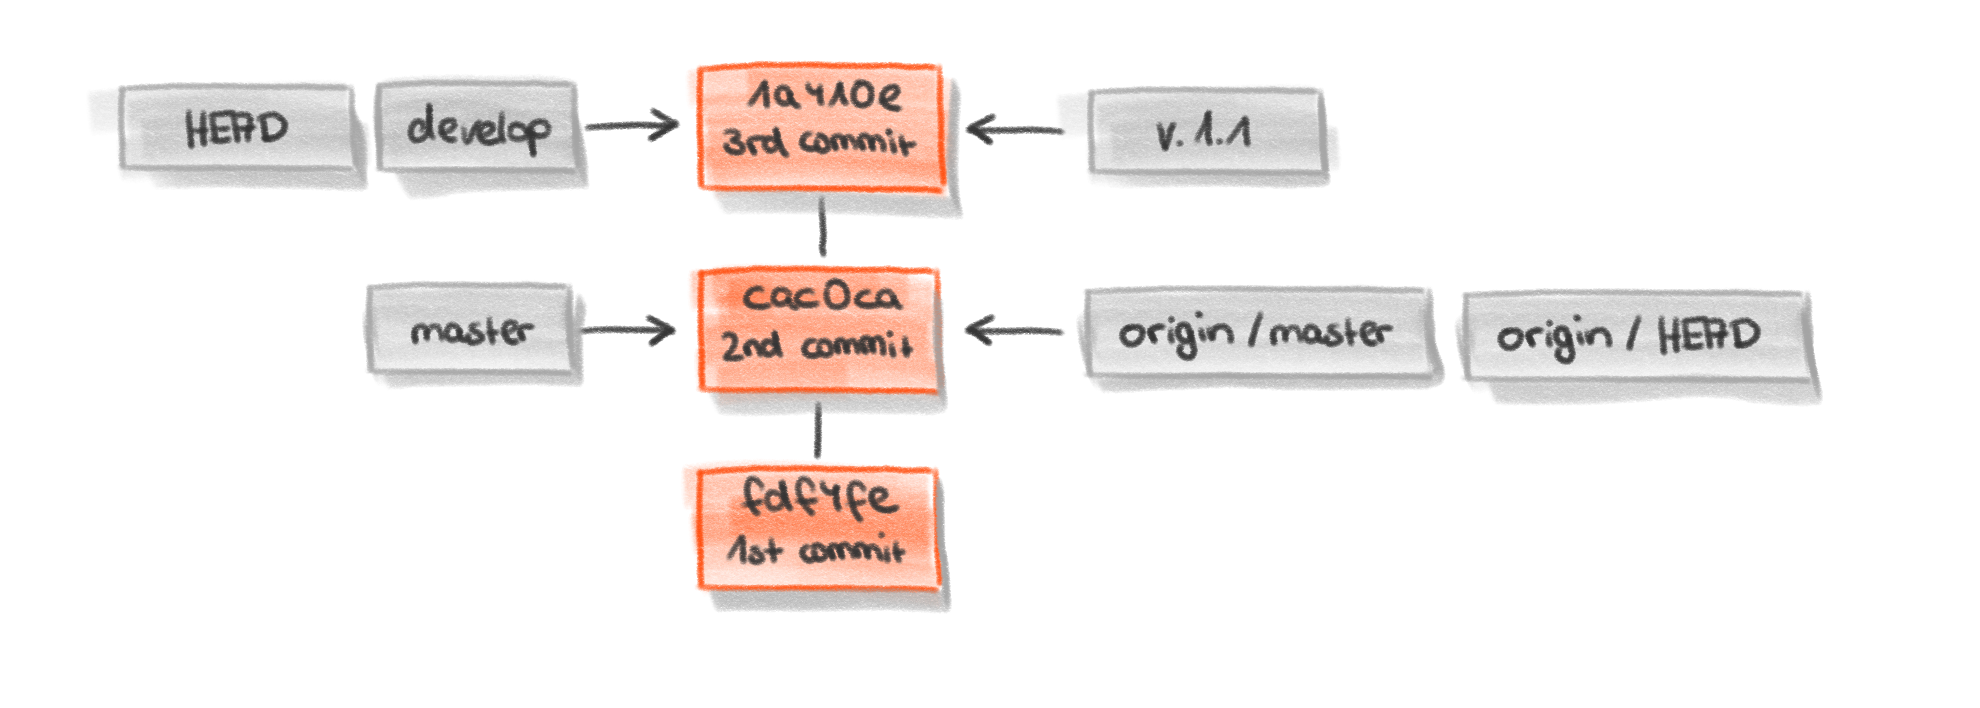 HEAD
develop
1a410e
3rd commit
v.1.1
master
cac0ca
2nd commit
origin/master
origin/HEAD
fdf4fe
1st commit